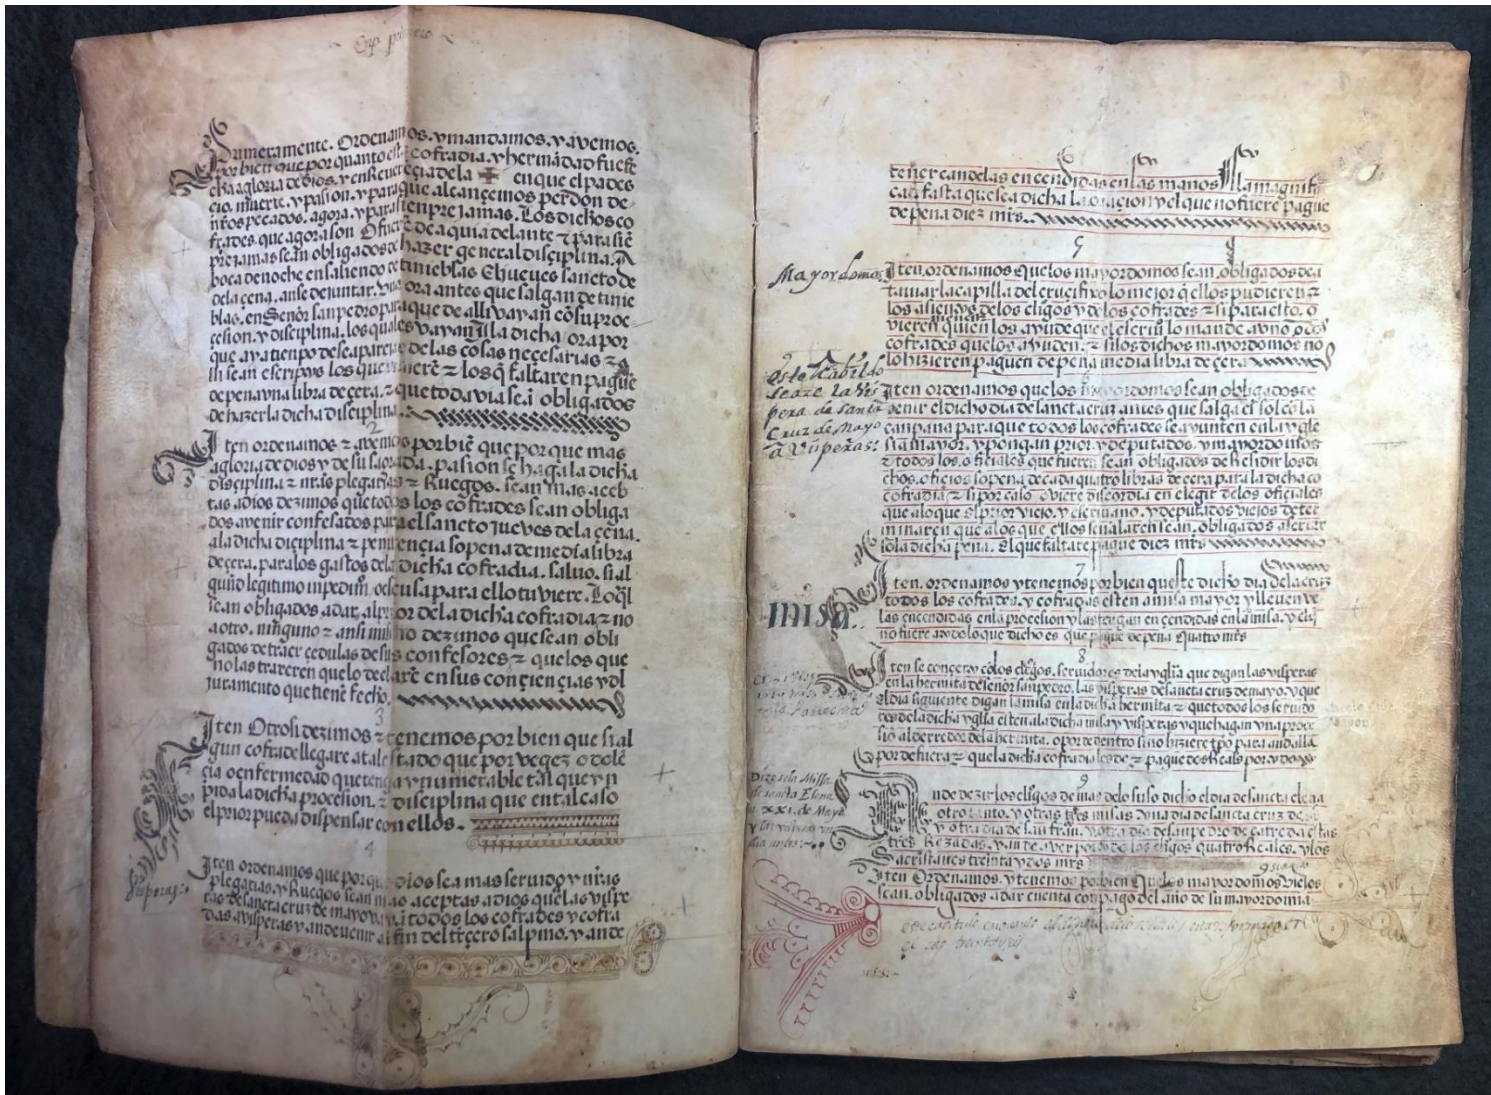 Cap primero
Primeramente. Ordenamos. y mandamos. y avemos.
por bien que por quanto esta cofradia. y hermãdad fuese
echa a gloria de dios. y en Reverẽçia de la ✝ en que el pades
cio. muerte. y pasion. y para que alcançemos perdon de
nr̃os pecados. agora. y para sienpre jamas. Los dichos co
frades que agora son. O fuerẽ de aqui adelante τ para siẽ
pre jamas seã obligados de hazer general disçiplina. A
boca de noche en saliendo de tinieblas El jueves sancto de
de la çena. anse de juntar. vna ora antes que salgan de tinie
blas. en Señor san pedro para que de alli vayan cõ su proc
çesion. y disçiplina. los quales vayan A la dicha ora por
que aya tienpo de se aparejar de las cosas neçesarias τ a
lli seã escriptos los que vinierẽ τ los q̃ faltaren pague
de pena vna libra de çera. τ que todavia seã obligados
de hazer la dicha disciplina.
2
Iten ordenamos τ avemos por biẽ que por que mas
a gloria de dios y de su sagrada. pasion se haga la dicha
disçiplina τ nr̃as plegarias τ Ruegos. sean mas aceb
tas a dios dezimos que todos los cofrades sean obliga
dos a venir confesados para el sancto jueves de la çena.
a la dicha diçiplina τ penitençia so pena de media libra
de çera. para los gastos de la dicha cofradia. salvo. si al
gund legitimo inpedim̃o o escusa para ello tuviere. Lo q̃l
sean obligados. a dar. al prior de la dicha cofradia τ no
a otro. ninguno τ ansi mismo dezimos que sean obli
gados de traer çedulas de sus confesores τ que los que
no las traxeren que lo declarẽ en sus conçiençias y dl
juramento que tienẽ fecho.
3
Iten Otrosi dezimos τ tenemos por bien que si al
gun cofrade llegare a tal estado que por vegez o dolẽ
çia o enfermedad que tenga y numerable tal que yn
pida la dicha proçesion. τ disciplina que en tal caso
el prior pueda dispensar con ellos.
4
Iten ordenamos que por que dios sea mas servido y nr̃as
plegarias. y Ruegos sean mas aceptas a dios que las vispe
ras de sancta cruz de mayo vayã todos los cofrades y cofra
das a visperas y an de venir al fin del terçero salpino. y an de
Visperas:
tener candelas encendidas en las manos A la magnifi
cad fasta que sea dicha la oraçion y el que no fuere pague
de pena diez mr̃s.
5
Mayordomos
Iten. ordenamos Que los mayordomos sean. obligados de a
taviar la capilla del cruçifixo lo mejor q̃ ellos pudieren τ
los asientos de los cl̃igos y de los cofrades τ si para esto. o
vieren quien los ayude que el escriũ lo mande a vno o dos
cofrades que los ayuden. τ si los dichos mayordomos no
lo hizieren paguen de pena media libra de çera
este Cabildo
se aze la Vis
pera de Santa
Cruz de Mayo
a Visperas:
Iten ordenamos que los mayordomos sean obligados de
venir el dicho dia de sancta cruz antes que salga el sol es la
canpana para que todos los cofrades se ayunten en la ygle
sia mayor. y pongan prior. y deputados. y mayordomos
τ todos los. ofiçiales que fueren sean obligados de Residir los di
chos. ofiçios so pena de cada quatro libras de çera para la dicha co
fradia τ si por caso oviere discordia en elegir de los ofiçiales
que a lo que el prior viejo. y escriuano. y deputados viejos deter
minaren que a los que ellos señalaren sean. obligados a açetar
so la dicha pena. El que faltare pague diez mr̃s
7
misa..
Iten. ordenamos y tenemos por bien que este dicho dia de la cruz
todos los cofrades. y cofradas esten a misa mayor y lleven ve
las encendidas en la proçesion y las tengan ençendidas en la misa. y el q̃
no fuere a todo lo que dicho es que pague de pena Quatro mr̃s
8
Iten se conçerto cõ los cl̃igos. servidores de la yglia que digan las visperas
en la hermita de señor san pedro. las visperas de sancta cruz de mayo. y que
el dia siguiente digan la misa en la dicha hermita τ que todos los servido
res de la dicha yglia esten a la dicha misa y visperas y que hagan vna proçe
siõ al derredor de la hermita. o por de dentro si no hiziere tp̃o para andalla
por de fuera τ que la dicha cofradia les de τ pague dos Reales por todo
9
Dizese la Missa
de santa Elena
a XXI. de Mayo
y las visperas un
dia antes:
An de dezir los cl̃igos de mas de lo suso dicho el dia de sancta elena
otro tanto. y otras tres misas. vna dia de sancta cruz de
y otra dia de san fran.º y otra dia de san pedro de catreda estas
tres Rezadas. y an de aver por todo los cl̃igos quatro Reales. y los
Sacristanes treinta y dos mr̃s
Iten Ordenamos. y tenemos por bien Que los mayordomos viejos
sean. obligados a dar cuenta con pago del año de su mayordomia
este capitulo